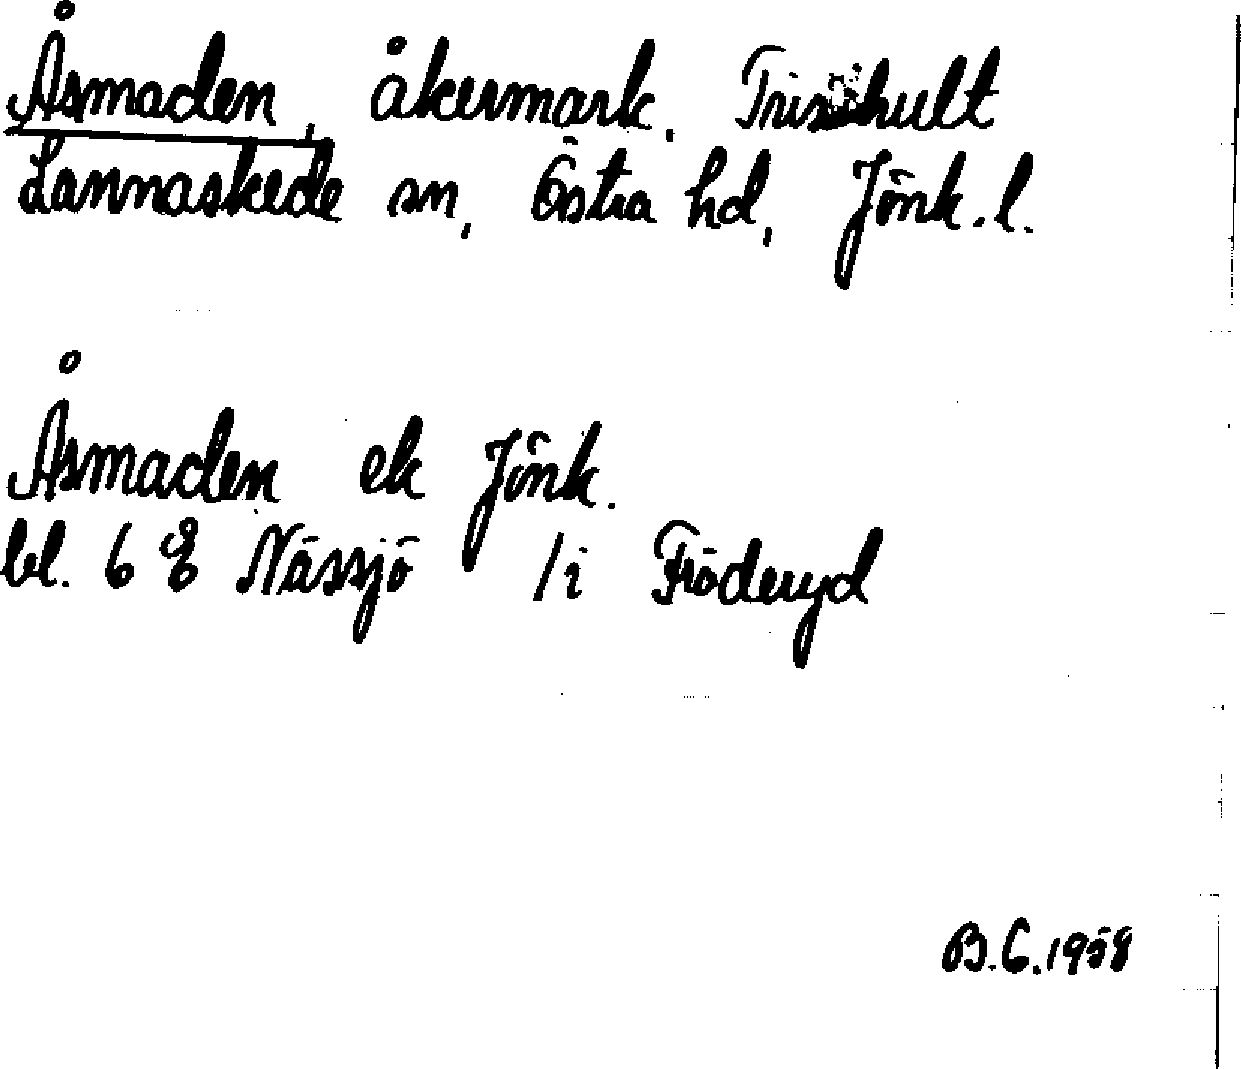 Åsmaden, åkermark. Trishult
Lannaskede sn, Östra hd, Jönk. l.
Åsmaden ek Jönk.
bl. 6 g Nässjö / i Fröderyd
B.G. 1958